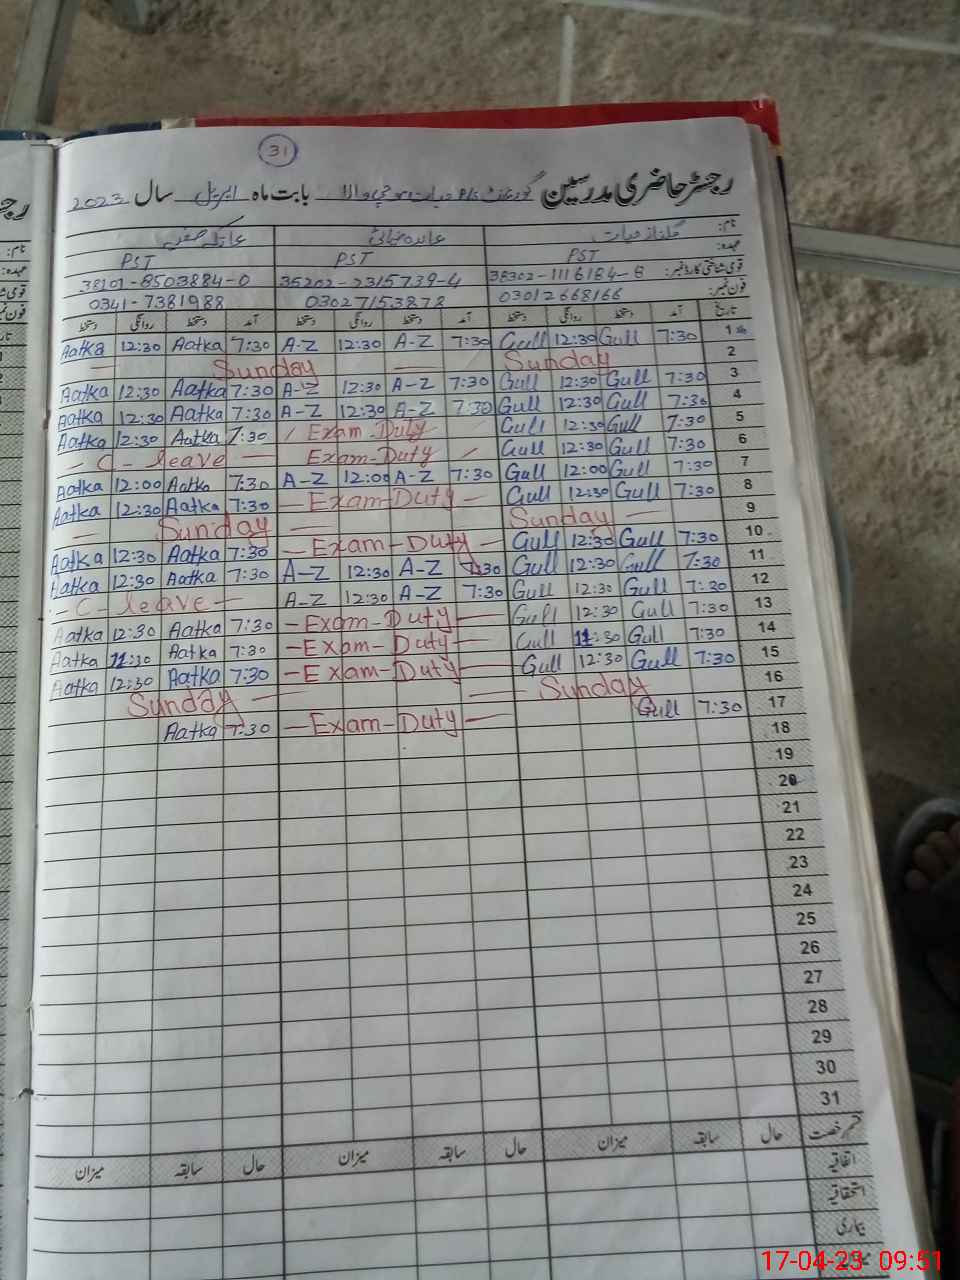 31
رجسٹر حاضری مدرسین گورنمنٹ P/S حیات والا بابت ماہ اپریل سال 2023
نام: گلناز حیات عابدہ عاتکہ صفیہ
عہدہ: PST PST PST
قومی شناختی کارڈ نمبر: 38302-1116184-8 35202-2315739-4 38101-8503884-0
فون نمبر: 03012668166 03027153878 0341-7381988
تاریخ آمد دستخط روانگی دستخط آمد دستخط روانگی دستخط آمد دستخط روانگی دستخط
Aatka 12:30 Aatka 7:30 A-Z 12:30 A-Z 7:30 Gull 12:30 Gull 7:30 1
— Sunday — Sunday 2
Aatka 12:30 Aatka 7:30 A-Z 12:30 A-Z 7:30 Gull 12:30 Gull 7:30 3
Aatka 12:30 Aatka 7:30 A-Z 12:30 A-Z 7:30 Gull 12:30 Gull 7:30 4
Aatka 12:30 Aatka 7:30 Exam-Duty Gull 12:30 Gull 7:30 5
- C - leave — Exam-Duty Gull 12:30 Gull 7:30 6
Aatka 12:00 Aatka 7:30 A-Z 12:00 A-Z 7:30 Gull 12:00 Gull 7:30 7
Aatka 12:30 Aatka 7:30 — Exam-Duty — Gull 12:30 Gull 7:30 8
— Sunday — Sunday — 9
Aatka 12:30 Aatka 7:30 — Exam-Duty — Gull 12:30 Gull 7:30 10
Aatka 12:30 Aatka 7:30 A-Z 12:30 A-Z 7:30 Gull 12:30 Gull 7:30 11
- C - leave — A-Z 12:30 A-Z 7:30 Gull 12:30 Gull 7:30 12
Aatka 12:30 Aatka 7:30 — Exam-Duty — Gull 12:30 Gull 7:30 13
Aatka 11:30 Aatka 7:30 — Exam-Duty — Gull 11:30 Gull 7:30 14
Aatka 12:30 Aatka 7:30 — Exam-Duty — Gull 12:30 Gull 7:30 15
Sunday — — Sunday 16
Aatka 7:30 — Exam-Duty — Gull 7:30 17
18
19
20
21
22
23
24
25
26
27
28
29
30
31
قسم رخصت حال سابقہ میزان حال سابقہ میزان حال سابقہ میزان
اتفاقیہ
استحقاقیہ
بیماری
17-04-23 09:51